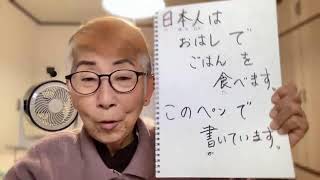 日本人は
おはしで
ごはんを
食べます。
このペンで
書いています。